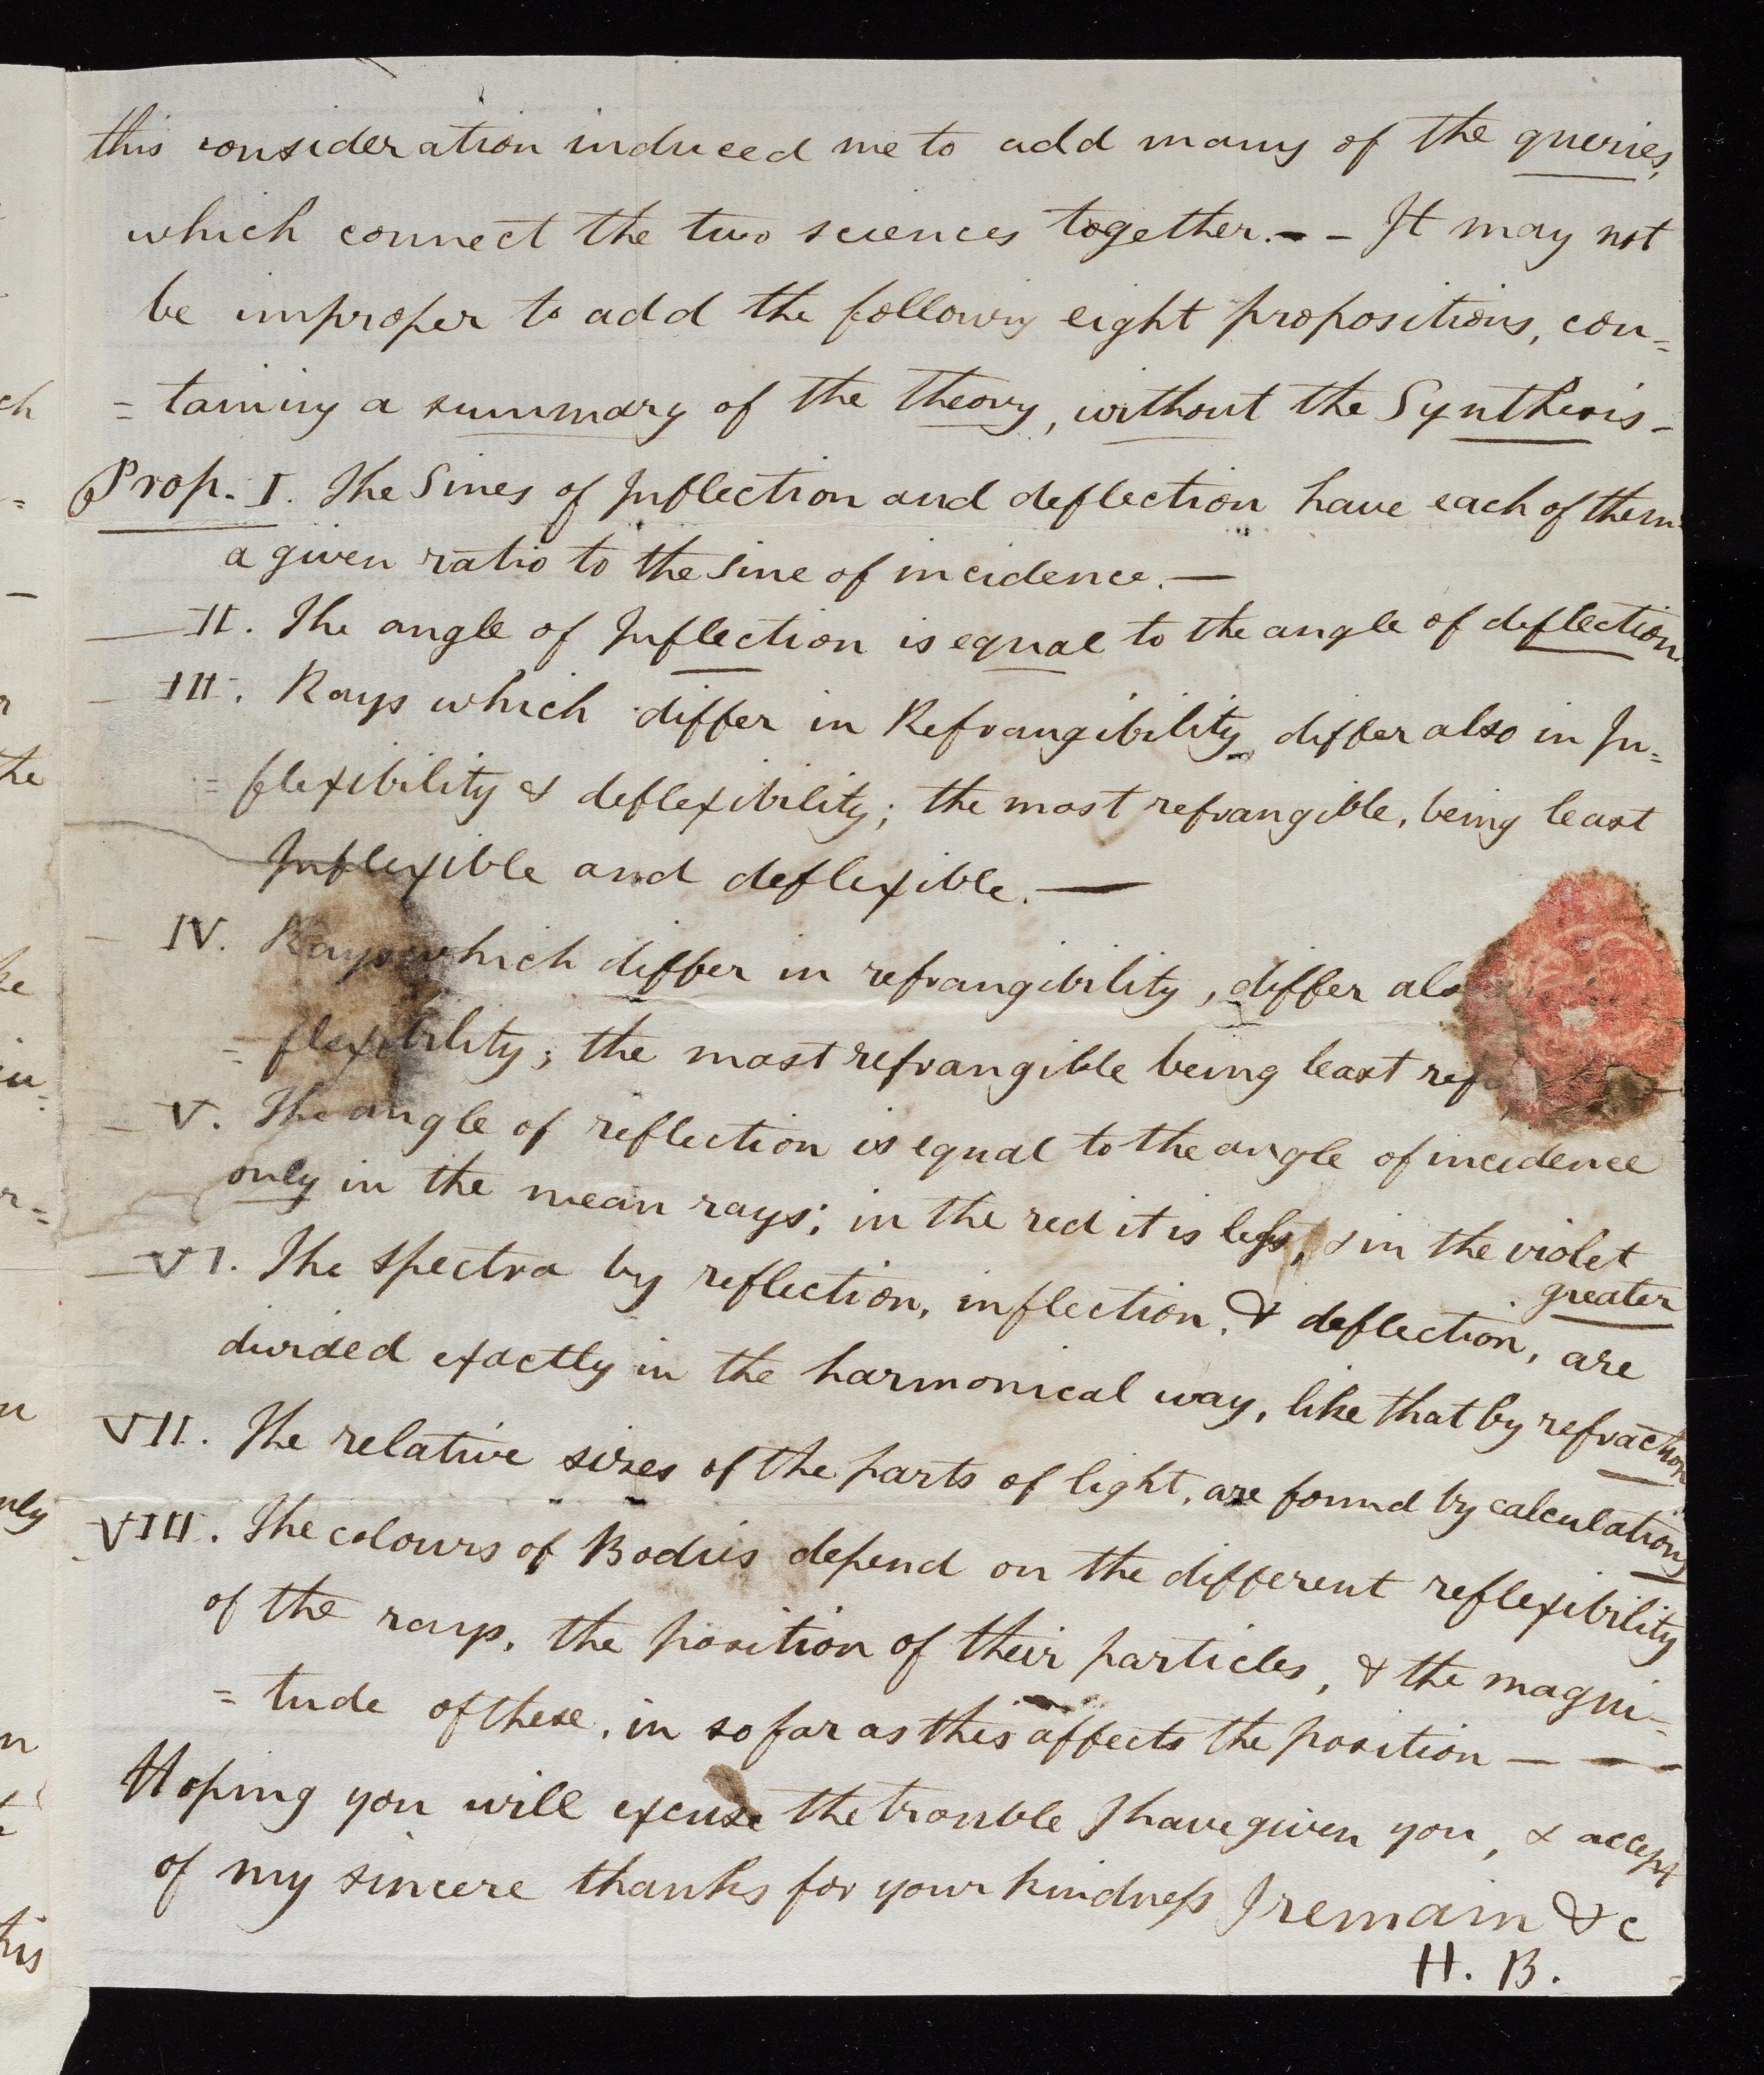 this consideration induced me to add many of the queries,
which connect the two sciences together. - - It may not
be improper to add the following eight propositions, con=
= taining a summary of the theory, without the Synthesis -
Prop. I. The Sines of Inflection and deflection have each of them
a given ratio to the sine of incidence. —
— II. The angle of Inflection is equal to the angle of deflection.
— III. Rays which differ in Refrangibility differ also in In=
= flexibility & deflexibility; the most refrangible, being least
Inflexible and deflexible. —
— IV. Rays which differ in refrangibility, differ also
= flexibility; the most refrangible being least
— V. The angle of reflection is equal to the angle of incidence
only in the mean rays; in the red it is less, & in the violet
greater
— VI. The spectra by reflection, inflection, & deflection, are
divided exactly in the harmonical way, like that by refraction
VII. The relative sizes of the parts of light, are found by calculation,
VIII. The colours of Bodies depend on the different reflexibility
of the rays, the position of their particles, & the magni=
= tude of these, in so far as this affects the position — — —
Hoping you will excuse the trouble I have given you, & accept
of my sincere thanks for your kindness I remain &c
H. B.
ch
=
—
r
the
ke
in=
r=
n
nly
n
t
his